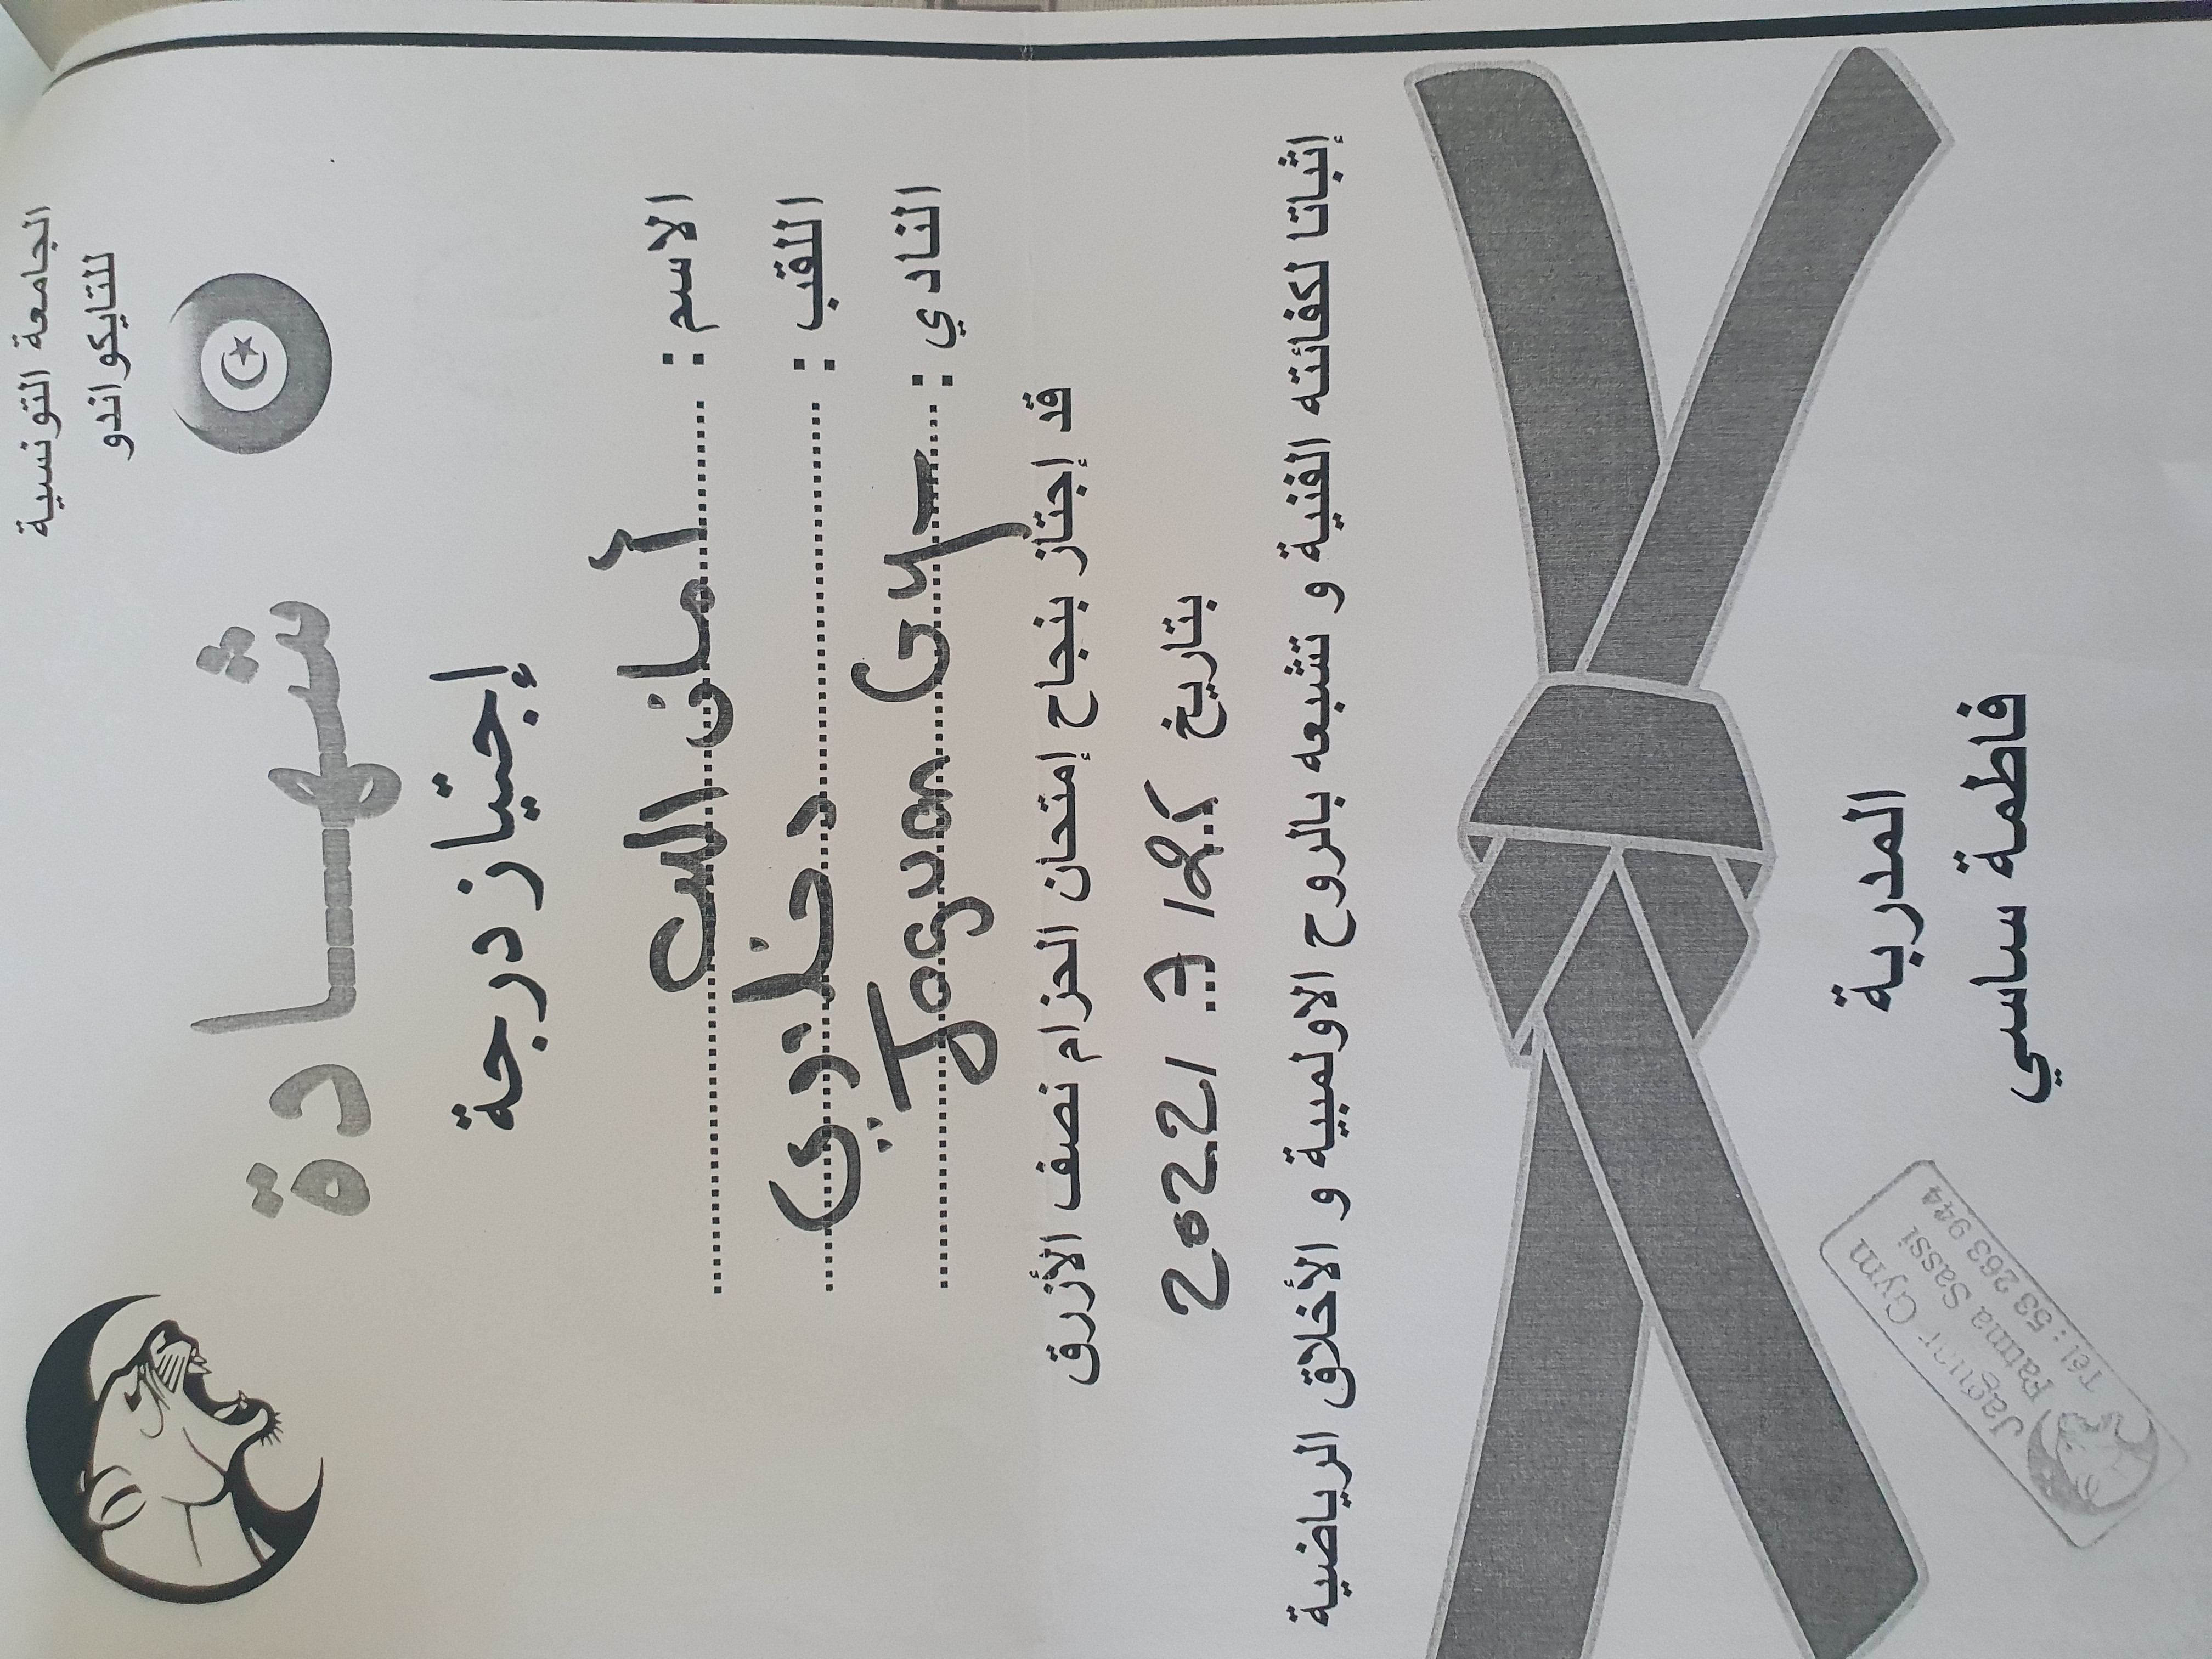 الجامعة التونسية
للتايكواندو
شهادة
إجتياز درجة
الاسم : أمان الله
اللقب :
النادي : Jaguar Gym
قد إجتاز بنجاح إمتحان الحزام نصف الأزرق
بتاريخ 2022
إثباتا لكفائته الفنية و تشبعه بالروح الاولمبية و الأخلاق الرياضية
المدربة
فاطمة ساسي
Jaguar Gym
Fatma Sassi
Tél : 53 263 944